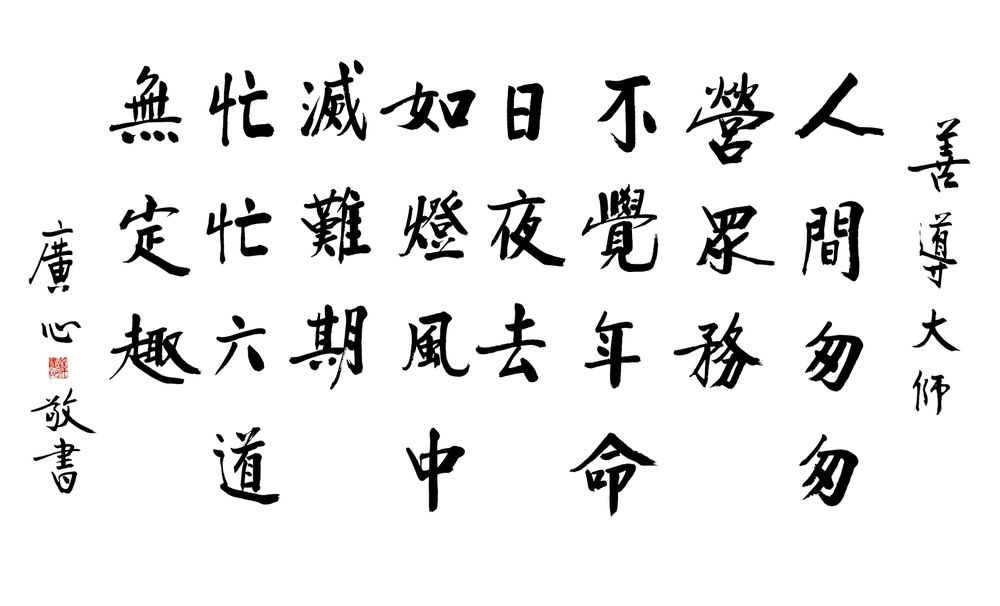 善導大師
人間匆匆
營眾務
不覺年命
日夜去
如燈風中
滅難期
忙忙六道
無定趣
廣心敬書